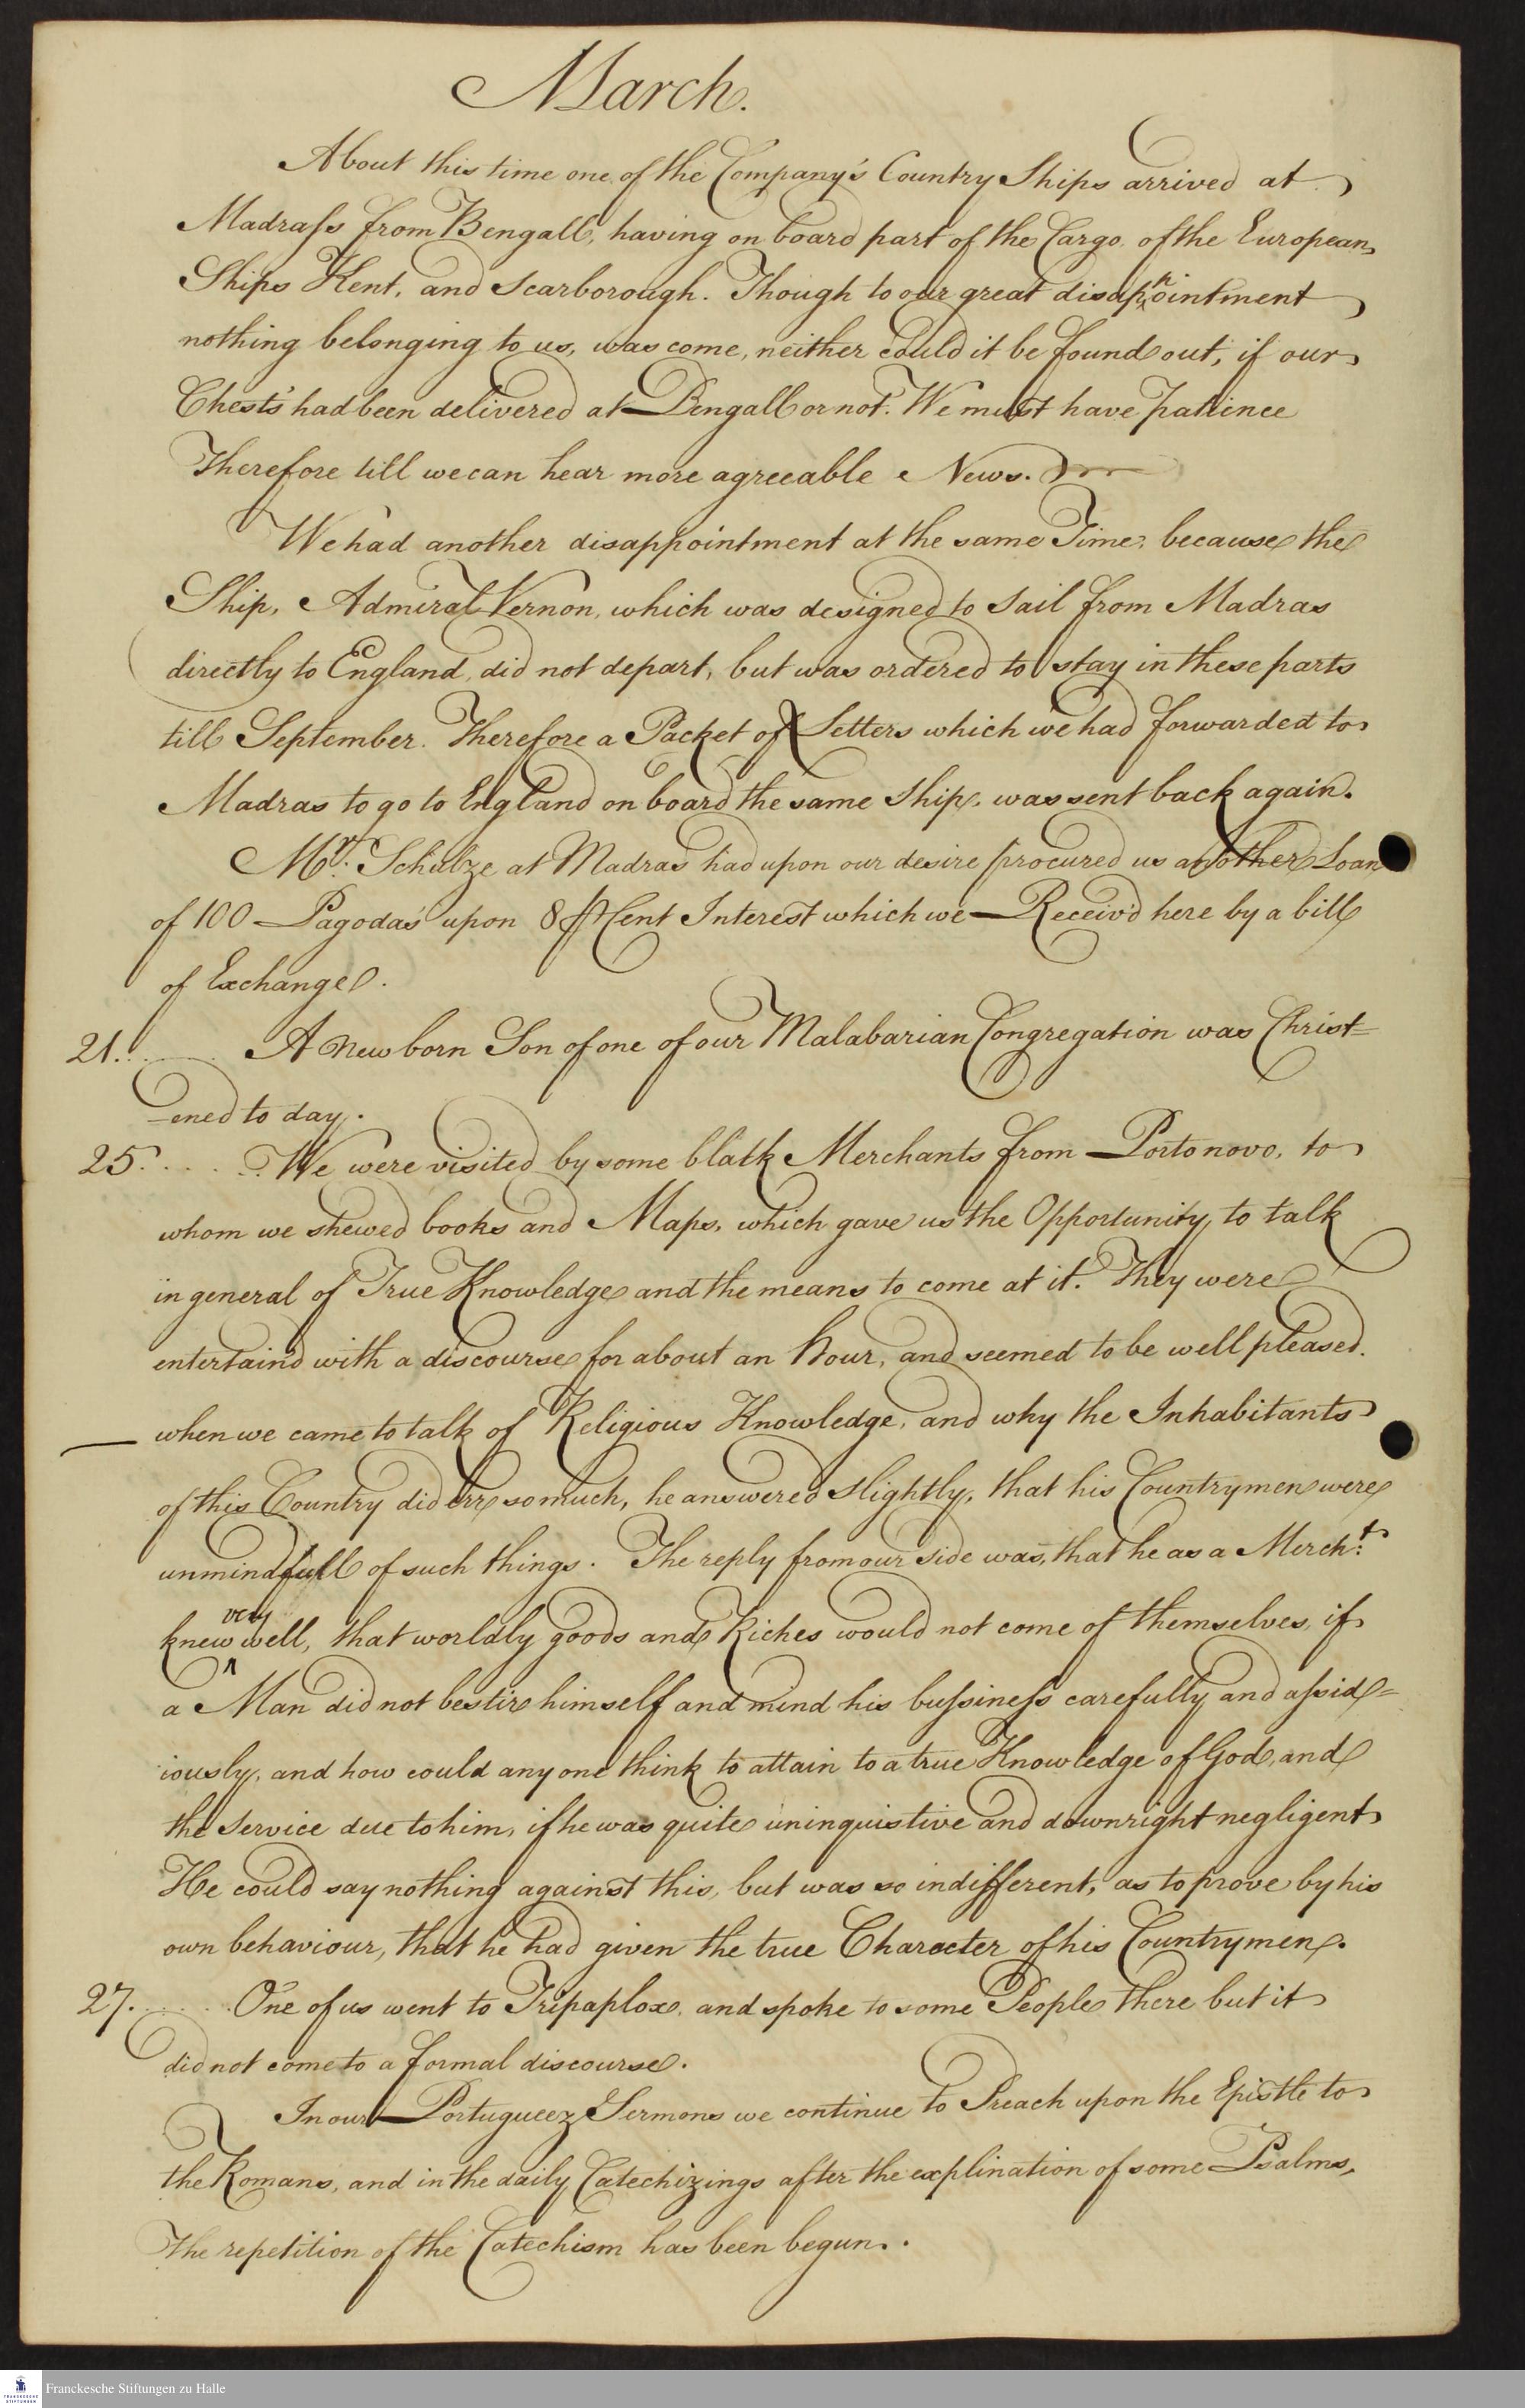 March.
About this time one of the Company's Country Ships arrived at
Madrass from Bengall, having on board part of the Cargo of the European
Ships Kent, and Scarborough. Though to our great disappointment
nothing belonging to us, was come, neither could it be found out, if our
Chests had been delivered at Bengall or not. We must have Patience
Therefore till we can hear more agreeable News.
We had another disappointment at the same Time, because the
Ship, Admiral Vernon, which was designed to Sail from Madras
directly to England, did not depart, but was ordered to stay in these parts
till September. Therefore a Packet of Letters which we had forwarded to
Madras to go to England on board the same Ship, was sent back again.
Mr. Schulze at Madras had upon our desire procured us another Loan
of 100 Pagodas upon 8 ⅌ Cent Interest which we Receiv'd here by a bill
of Exchange.
21. A New born Son of one of our Malabarian Congregation was Christ=
=ened to day.
25. We were visited by some black Merchants from Portonovo, to
whom we shewed books and Maps, which gave us the Opportunity, to talk
in general of True Knowledge and the means to come at it. They were
entertain'd with a discourse for about an Hour, and seemed to be well pleased.
when we came to talk of Religious Knowledge, and why the Inhabitants
of this Country did err so much, he answered Slightly, that his Countrymen were
unmindfull of such things. The reply from our Side was, that he as a Mercht.
knew very well, that worldly goods and Riches would not come of themselves, if
a Man did not bestir himself and mind his bussiness carefully and assid=
iously, and how could any one think to attain to a true Knowledge of God, and
the Service due to him, if he was quite uninquistive and downright negligent
He could say nothing against this, but was so indifferent, as to prove by his
own behaviour, that he had given the true Character of his Countrymen.
27. One of us went to Tripaplox, and spoke to some People there but it
did not come to a formal discourse.
In our Portugueez Sermons we continue to Preach upon the Epistle to
the Romans, and in the daily Catechizings after the explination of some Psalms,
The repetition of the Catechism has been begun.
Franckesche Stiftungen zu Halle